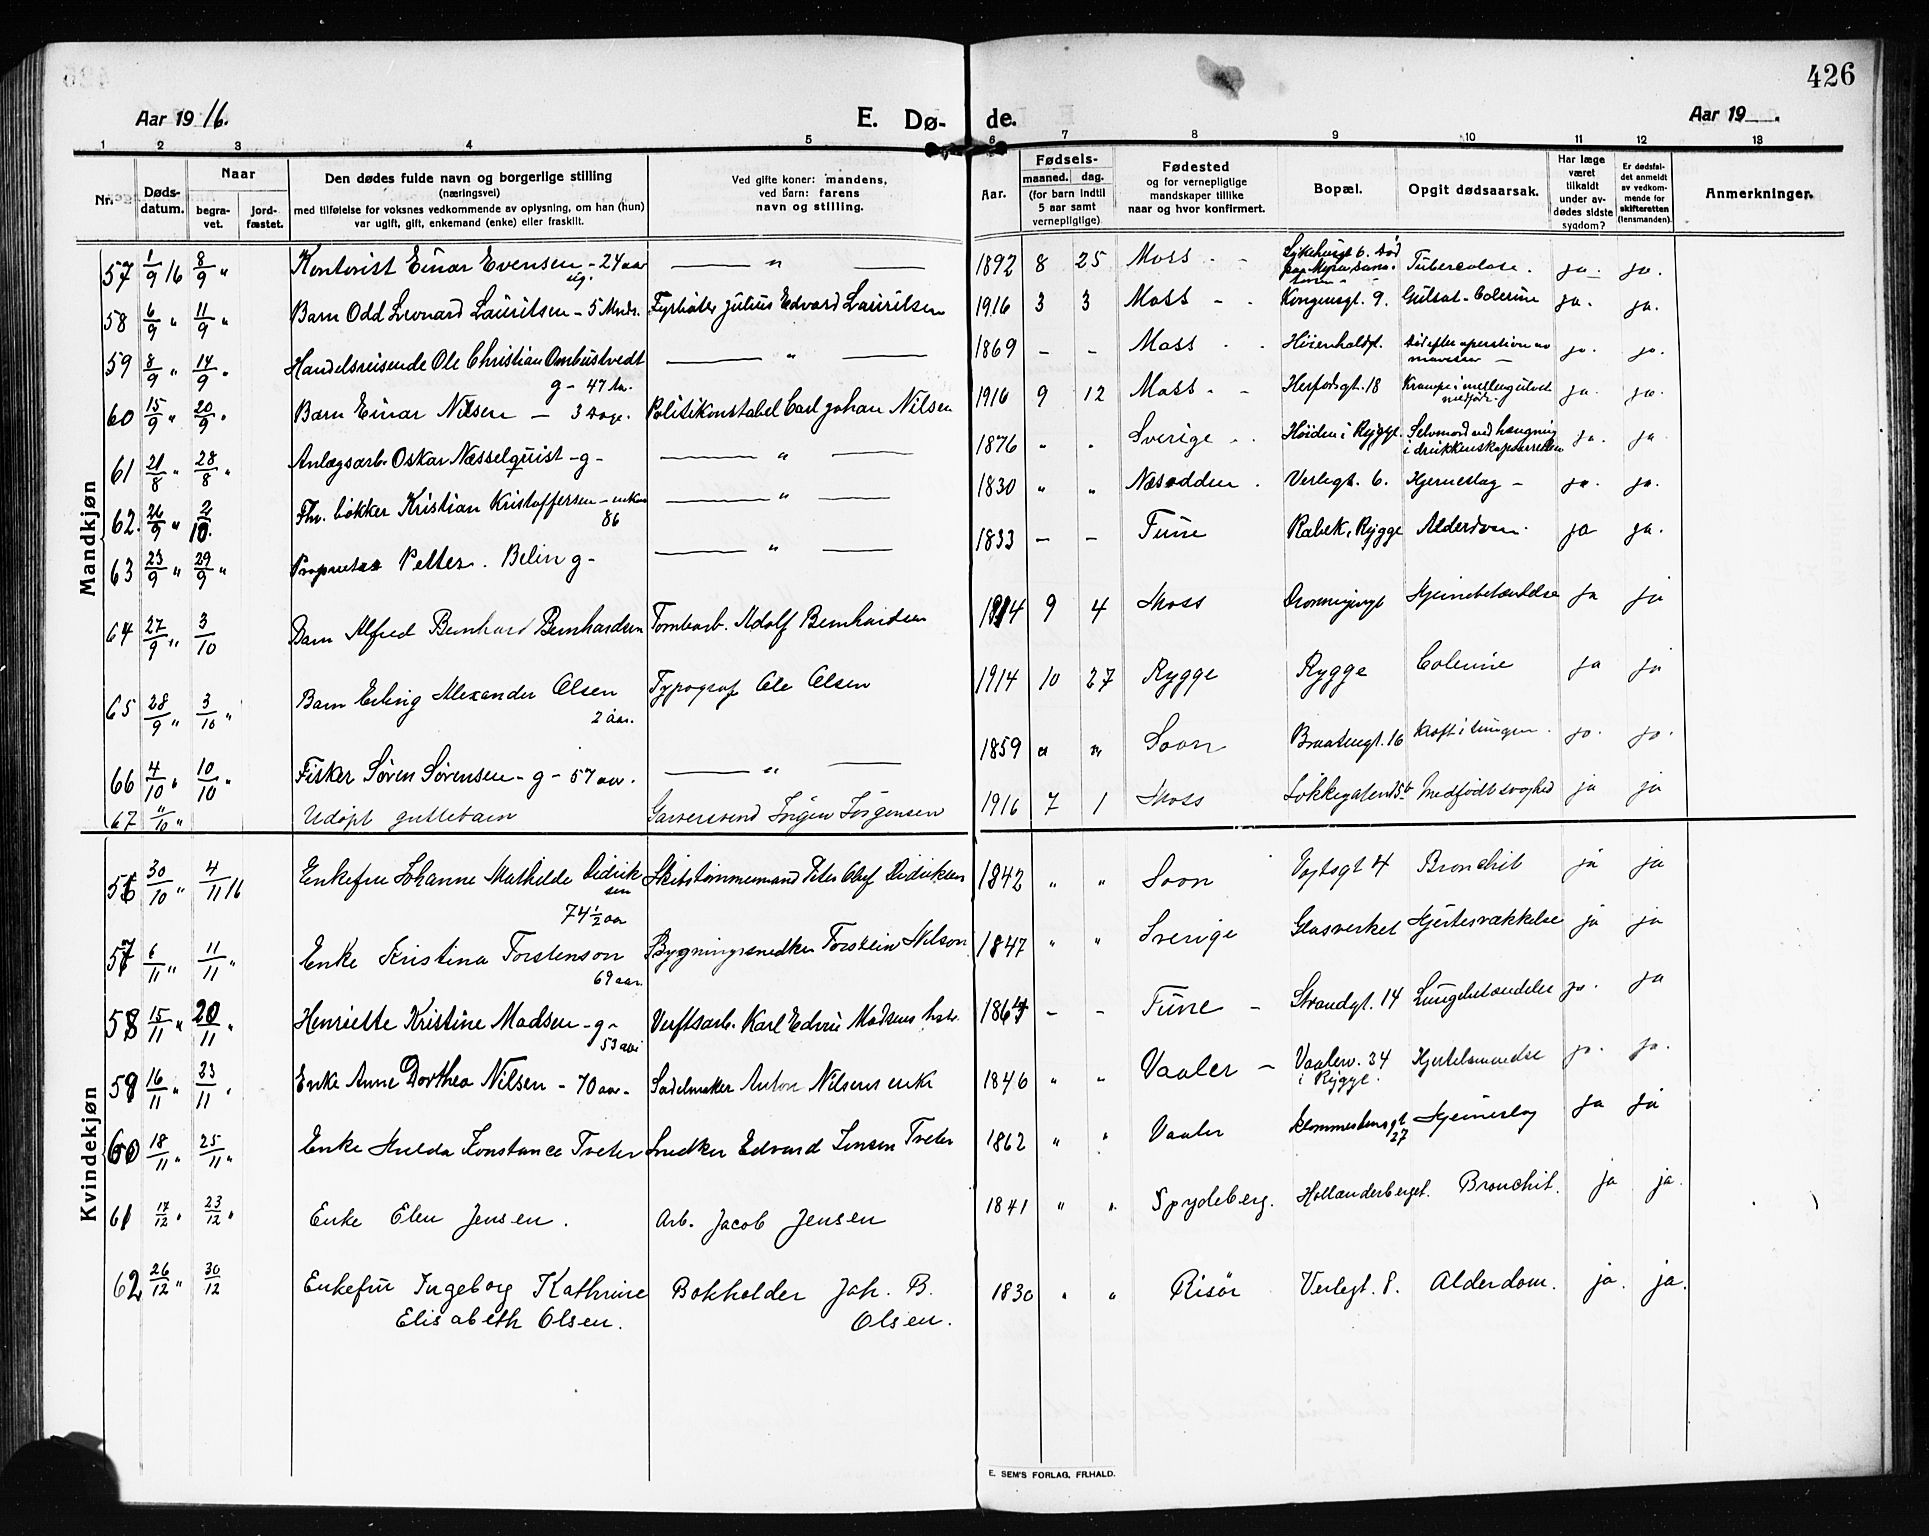 426
Aar 1916.
E. Dø-
de.
Aar 19
1 2 3 4 5 6 7 8 9 10 11 12 13
Nr.
Døds-
datum.
Naar
begra-
vet.
jord-
fæstet.
Den dødes fulde navn og borgerlige stilling
(næringsvei)
med tilføielse for voksnes vedkommende av oplysning, om han (hun)
var ugift, gift, enkemand (enke) eller fraskilt.
Ved gifte koner: mandens,
ved barn: farens
navn og stilling.
Aar.
Fødsels-
maaned. dag.
(for barn indtil
5 aar samt
vernepligtige)
Fødested
og for vernepligtige
mandskaper tillike
naar og hvor konfirmert.
Bopæl.
Opgit dødsaarsak.
Har læge
været
tilkaldt
under av-
dødes sidste
sygdom?
Er dødsfal-
det anmeldt
av vedkom-
mende for
skifteretten
(lensmanden).
Anmerkninger.
Mandkjøn
57 1/9 16 8/9 " Kontorist Einar Evensen - 24 aar ug. " 1892 8 25 Moss - - Sykehusgt 6. Død paa Tuberculose. ja. ja.
58 6/9 " 11/9 " Barn Odd Leonard Lauritsen - 5 Mndr. Fyrbøter Julius Edvard Lauritsen 1916 3 3 Moss - - Kongensgt. 9. Gulsot - Colerine ja. ja.
59 8/9 " 14/9 " Handelsreisende Ole Christian Ombustvedt g - 47 " 1869 - - Moss - - Død efter operation av mavesaar - ja. ja.
60 15/9 " 20/9 " Barn Einar Nilsen - 3 Dage. Politikonstabel Carl Johan Nilsen 1916 9 12 Moss - - Herfodsgt. 18 Krampe i ja. ja.
61 21/8 " 28/8 " Anlægsarb. Oskar Næsselquist - g - " 1876 " " Sverige - - Høiden i Rygge. Selvmord ved hængning i ja. ja
62. 26/9 " 2/10. Fhv. bøkker Kristian Kristoffersen - enkem 86 " 1830 " " Næsodden . Verlegt. 6. Hjerneslag - ja. ja.
63 23/9 " 29/9 " Proprietær Petter. Belin g - " 1833 - - Tune Rabek, Rygge Alderdom. ja ja.
64 27/9 " 3/10 Barn Alfred Bernhard Bernhardsen Tomtearb. Adolf Bernhardsen 1914 9 4 Moss Dronningensgt Hjernebetændelse ja ja
65 28/9 " 3/10 " Barn Erling Alexander Olsen 2 aar. Typograf Ole Olsen 1914 10 27 Rygge Rygge Colerine ja ja
66 4/10 " 10/10 " Fisker Søren Sørensen - g - 57 aar. " 1859 " " Soon Braatengt. 16 Kræft i lungen. ja. ja.
67 "/10 " Udøpt guttebarn Garversvend Jørgen Jørgensen 1916 7 1 Moss Løkkegaten 15b Medfødt svaghed ja ja
Kvindekjøn
56 30/10 " 4/11 16 Enkefru Johanne Mathilde Didrik-
sen
74½ aar Skibstømmermand Peter Olaf Didriksen 1842 " " Soon Vogtsgt 4 Bronchit ja ja
57 6/11 " 11/11 " Enke Kristina Torstenson 69 aar. Bygningssnedker Torstein Nilson 1847 " " Sverige Glasverket Hjertesvækkelse ja ja
58 15/11 " 20/11 " Henriette Kristine Madsen - g - 53 aar Verftsarb. Karl Edvin Madsens 1864 - - Tune - Strandgt. 14 Lungebetændelse ja. ja
59 16/11 " 23/11 " Enke Anne Dorthea Nilsen - 70 aar - Sadelmaker Anton Nilsens enke 1846 " " Vaaler - Vaalerv. 34 i Rygge. Hjertelammelse ja. ja.
60 18/11 " 25/11 " Enke Hulda Konstance Treter Snedker Edvard Jensen Treter 1862 " " Vaaler Klommesteinsgt 27 Hjerneslag ja ja
61 17/12 " 23/12 " Enke Elen Jensen. Arb. Jacob Jensen 1841 " " Spydeberg. Hollenderberget. Bronchit. ja ja.
62 26/12 " 30/12 Enkefru Ingeborg Kathrine
Elisabeth Olsen. Bokholder Joh. B.
Olsen. 1830 " " Risør Verlegt. 8. Alderdom. ja. ja.
E. SEM'S FORLAG, FR.HALD.